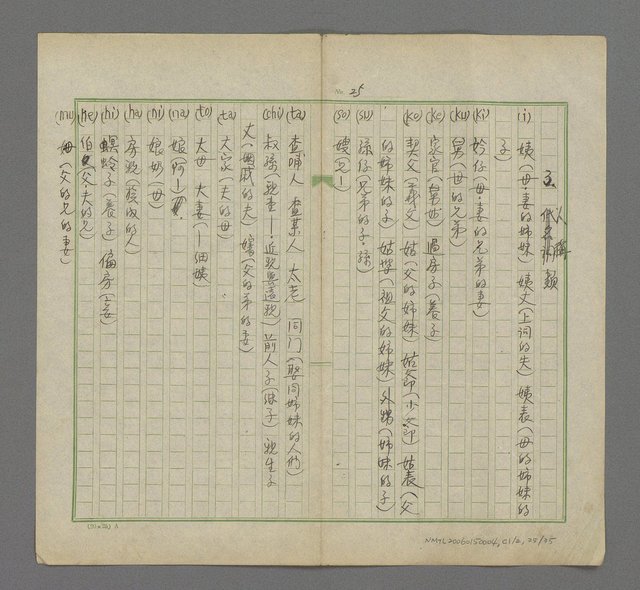 No. 25
3. 人稱類
(i) 姨(母·妻的姊妹) 姨丈(上词的夫) 姨表(母的姊妹的
子)
(ki) 妗仔(母·妻的兄弟的妻)
(ku) 舅(母的兄弟)
(ke) 家官 過房子(養子)
(ko) 契父(義父) 姑(父的姊妹) 姑爺(小爺) 姑表(父
的姊妹的子) 姑婆(祖父的姊妹) 外甥(姊妹的子)
(su) 孫仔(兄弟的子·孫)
(so) 嫂(兄—)
(ta) 查哺人 查某人 大老 同门(娶同姊妹的人們)
(chi) 叔孫(親堂—·近親與遠親) 前人子(继子) 親生子
丈(與戚的夫) 嬸(父的弟的妻)
(ta) 大家(夫的母)
(to) 大母 大妻(—細姨)
(na) 娘(阿—)
(ni) 娘奶(母)
(ha) 房親(族内的人)
(hi) 螟蛉子(養子) 偏房(妾)
(pe) 伯(父·夫的兄)
(mu) 姆(父的兄的妻)
(20x25) A
NMTL20060150004, C1/2, 25/35